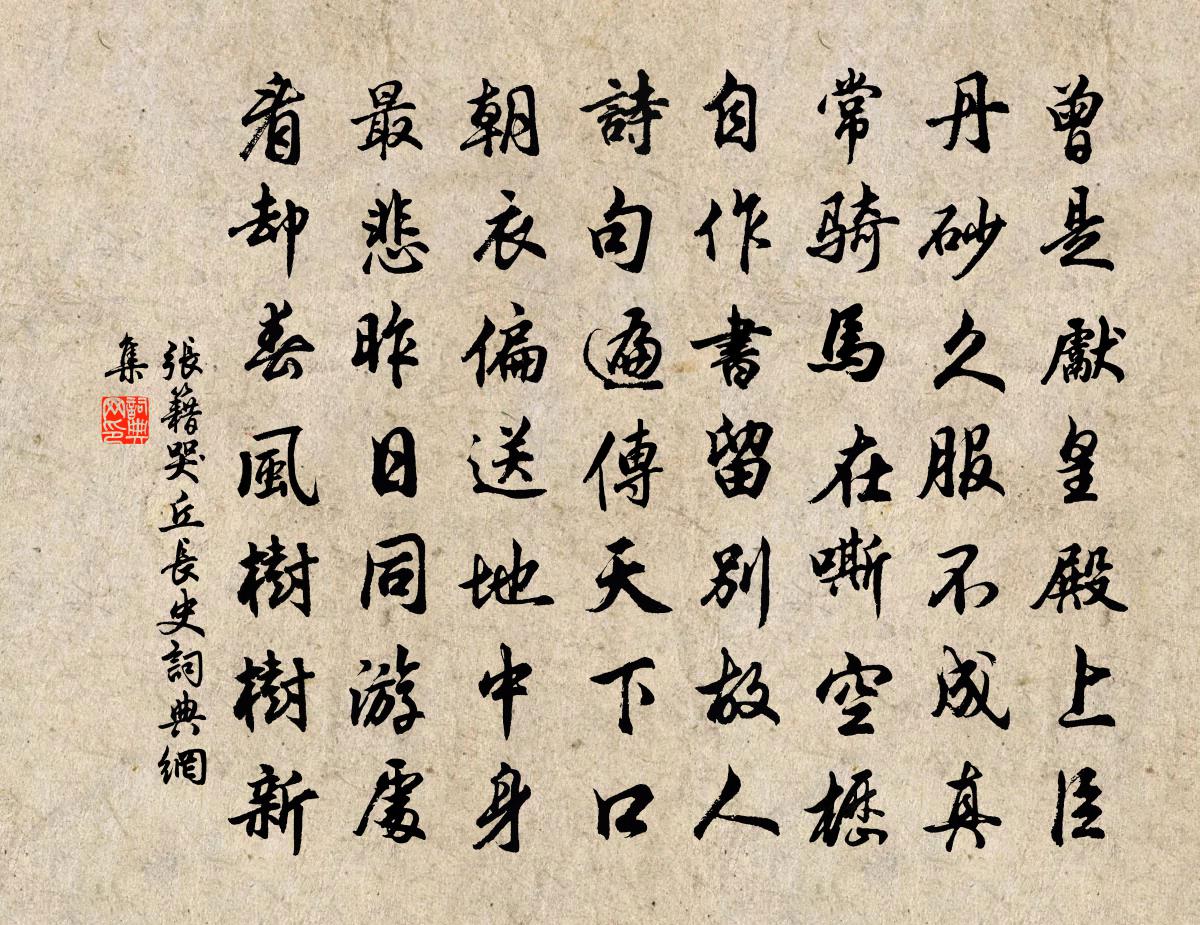 曾是獻皇殿上臣
丹砂久服不成真
常騎馬在嘶空櫪
自作書留別故人
詩句遍傳天下口
朝衣偏送地中身
最悲昨日同游處
看却春風樹樹新
張籍哭丘長史詞典網
集
詞典
网印